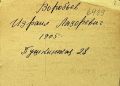 Воробьев
6439
Израиль Лазаревич
1905.
Пушкинская 28